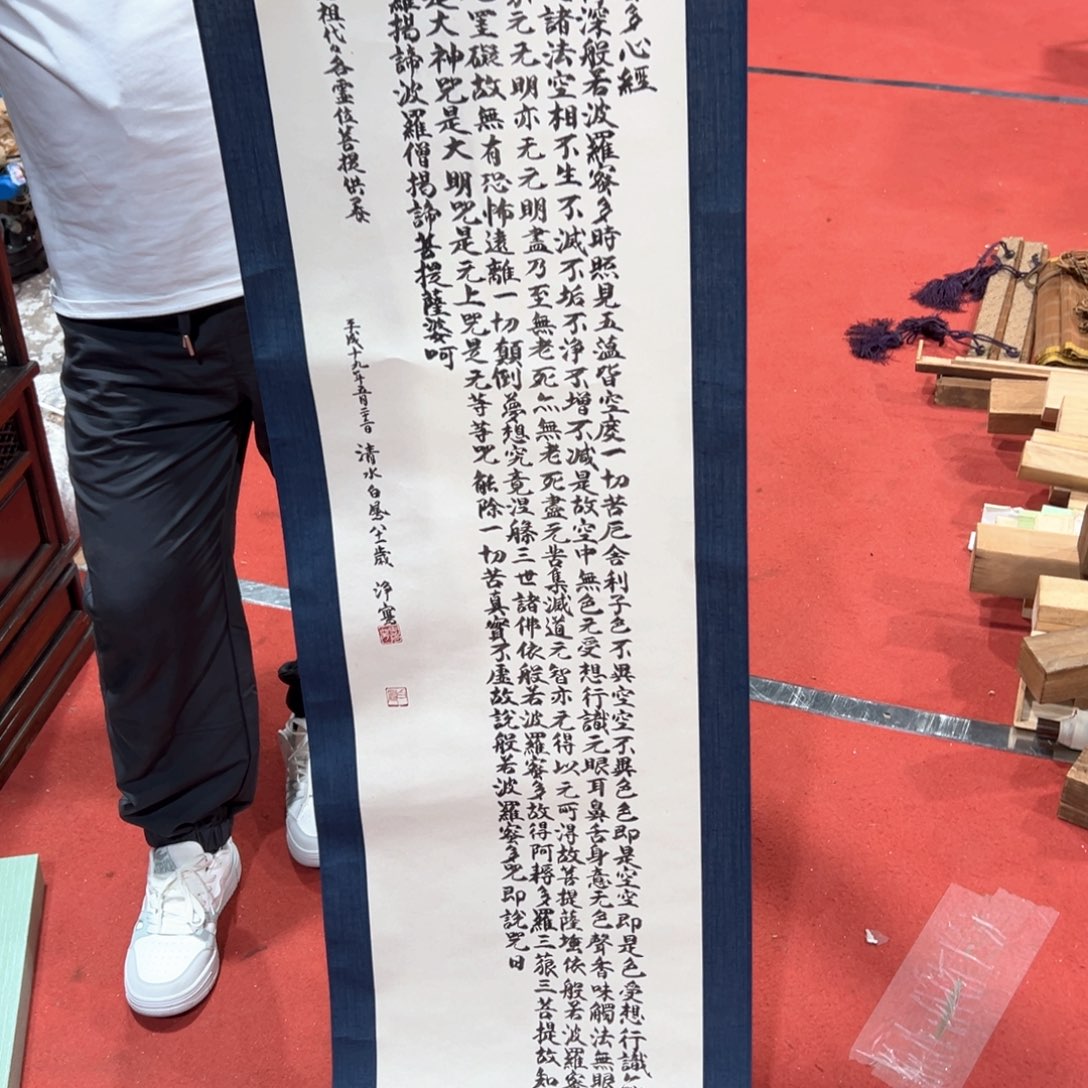 多心經
深般若波羅蜜多時照見五蘊皆空度一切苦厄舍利子色不異空空不異色色即是空空即是色受想行識
諸法空相不生不滅不垢不浄不增不減是故空中無色无受想行識无眼耳鼻舌身意无色聲香味觸法無眼
无无明亦无无明盡乃至無老死亦無老死盡无苦集滅道无智亦无得以无所得故菩提薩埵依般若波羅蜜
罣礙故無有恐怖遠離一切顛倒夢想究竟涅槃三世諸佛依般若波羅蜜多故得阿耨多羅三藐三菩提故知
是大神咒是大明咒是无上咒是无等等咒能除一切苦真實不虛故說般若波羅蜜多咒即說咒曰
羅揭諦波羅僧揭諦菩提薩婆呵
祖代々各霊位菩提供養
平成十九年五月 清水白 歳 浄寫